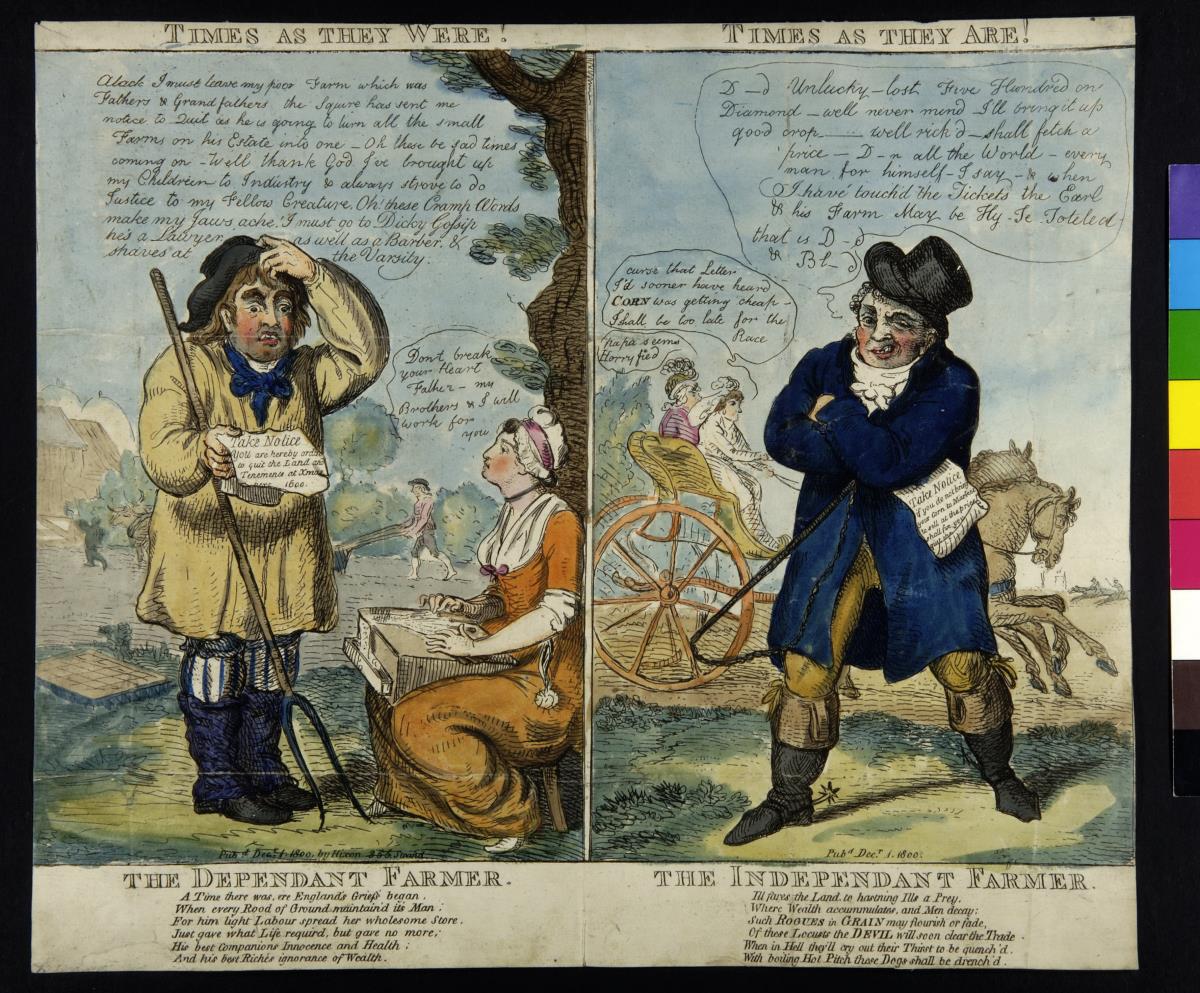 TIMES AS THEY WERE!
Alack I must leave my poor Farm which was
Fathers & Grandfathers the Squire has sent me
notice to Quit as he is going to turn all the small
Farms on his Estate into one – Oh these be sad times
coming on – Well thank God I've brought up
my Children to Industry & always strove to do
Justice to my Fellow Creature. Oh! these Cramp Words
make my Jaws ache! I must go to Dicky Gossip
he's a Lawyer as well as a Barber. &
shaves at the Varsity.
Don't break
your Heart
Father – my
Brothers & I will
work for
you
Take Notice
You are hereby order
to quit the Land and
Tenements at Xmas
1600.
Pubd. Decr. 1. 1800. by Hixon 355 Strand
THE DEPENDANT FARMER.
A Time there was, ere England's Griefs began.
When every Rood of Ground maintain'd its Man:
For him light Labour spread her wholesome Store.
Just gave what Life requir'd, but gave no more;
His best Companions Innocence and Health;
And his best Riches ignorance of Wealth.
TIMES AS THEY ARE!
D–d Unlucky – lost Five Hundred on
Diamond – well never mind I'll bring it up
good crop — well rick'd – shall fetch a
price – D–n all the World – every
man for himself – I say – & when
I have touch'd the Tickets the Earl
& his Farm May be Hy-Te Toteled
that is D–d
& Bl–d
curse that Letter
I'd sooner have heard
CORN was getting cheap –
I shall be too late for the
Race
papa seems
Horryfied
Take Notice
if you do not bring
your Corn to Market
THE INDEPENDANT FARMER.
Ill fares the Land, to hastning Ills a Prey.
Where Wealth accummulates, and Men decay:
Such ROGUES in GRAIN may flourish or fade,
Of these Locusts the DEVIL will soon clear the Trade.
When in Hell they'll cry out their Thirst to be quench'd.
With boiling Hot Pitch these Dogs shall be drench'd.
Pubd. Decr. 1. 1800.